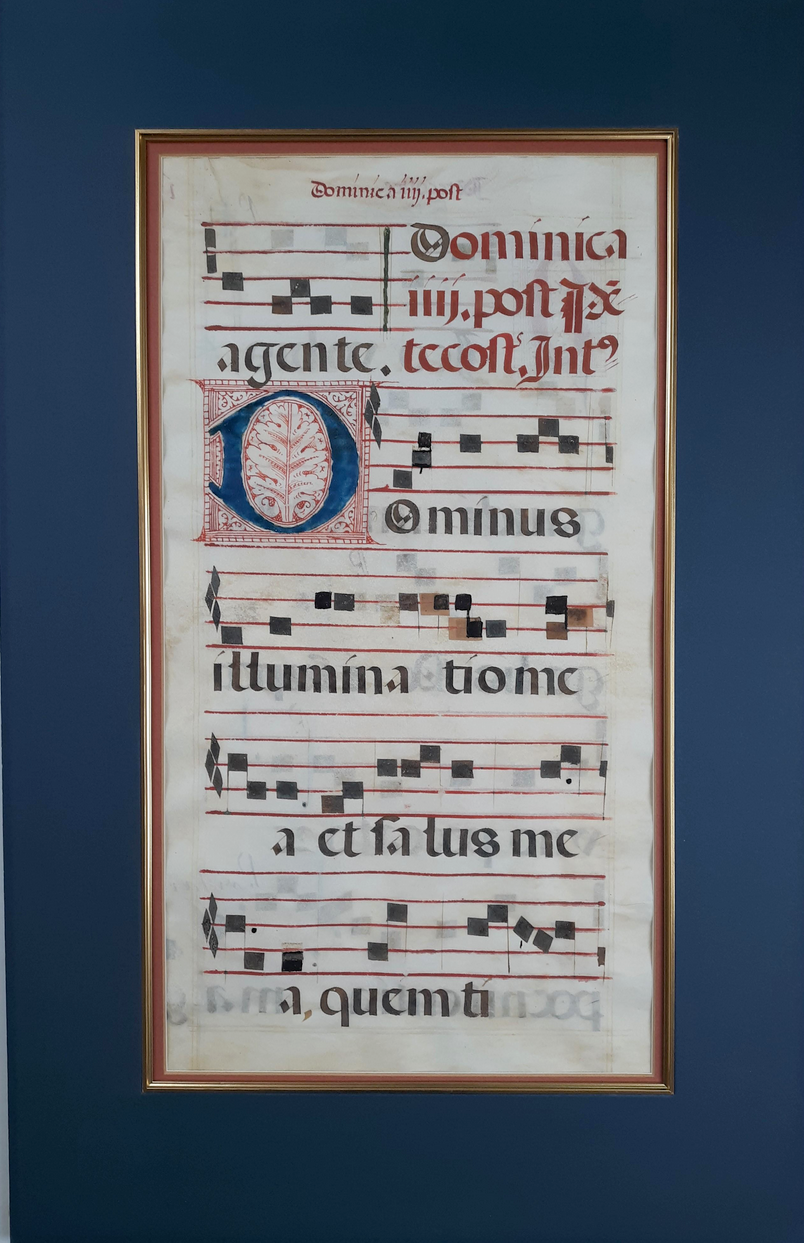 Dominica iiij. post
Dominica
iiij. post Pẽ
agente. tecost͛. Intꝰ
Ominus
illumina tio me
a et sa lus me
a, quem ti